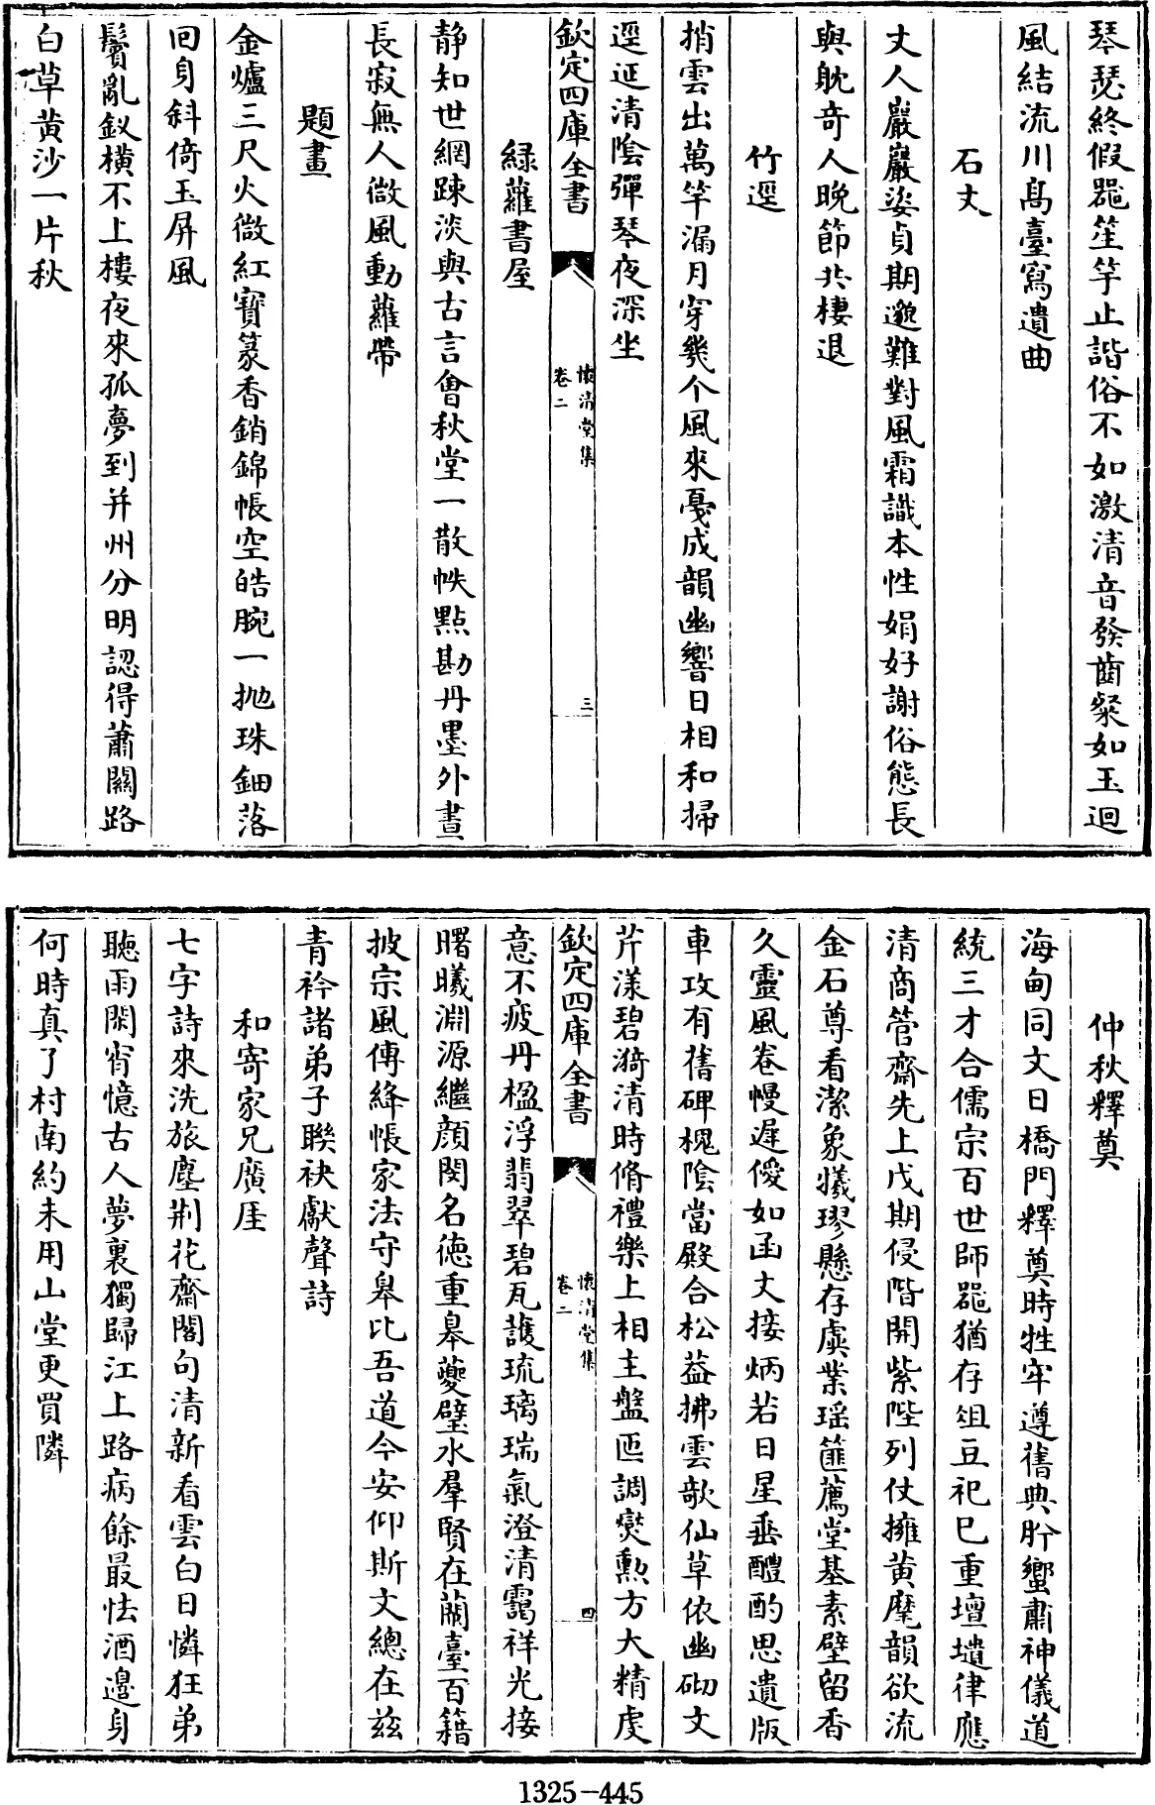 琴瑟終假器笙竽止諧俗不如激清音發齒粲如玉迴
風結流川髙臺寫遺曲
石丈
丈人巖巖姿貞期邈難對風霜識本性娟好謝俗態長
與躭竒人晚節共棲退
竹逕
捎雲出萬竿漏月穿幾个風來戛成韻幽響日相和掃
逕延清陰彈琴夜深坐
欽定四庫全書
懷清堂集
卷二
三
緑蘿書屋
静知世網踈淡與古言會秋堂一散帙㸃勘丹墨外晝
長寂無人微風動蘿帶
題畫
金爐三尺火微紅寳篆香銷錦帳空皓腕一抛珠鈿落
回身斜倚玉屏風
鬢亂釵横不上樓夜來孤夢到并州分明認得蕭闗路
白草黄沙一片秋
仲秋釋奠
海甸同文日橋門釋奠時牲牢遵舊典肸蠁肅神儀道
統三才合儒宗百世師器猶存俎豆祀巳重壇壝律應
清商管齋先上戊期侵階開紫陛列仗擁黄麾韻欲流
金石尊看潔象犧璆懸存虡業瑶篚薦堂基素壁留香
久靈風卷幔遲僾如函丈接炳若日星垂醴酌思遺版
車攻有舊碑槐陰當殿合松葢拂雲欹仙草依幽砌文
芹漾碧漪清時脩禮樂上相主盤匜調爕勲方大精虔
意不疲丹楹浮翡翠碧瓦護琉璃瑞氣澄清靄祥光接
曙曦淵源繼顔閔名徳重臯夔璧水羣賢在蘭臺百籍
披宗風傳絳帳家法守臯比吾道今安仰斯文總在兹
青衿諸弟子聨袂獻聲詩
欽定四庫全書
懷清堂集
卷二
四
和寄家兄廣厓
七字詩來洗旅塵荆花齋閣句清新看雲白日憐狂弟
聽雨閑宵憶古人夢裏獨歸江上路病餘最怯酒邊身
何時真了村南約未用山堂更買隣
1325-445